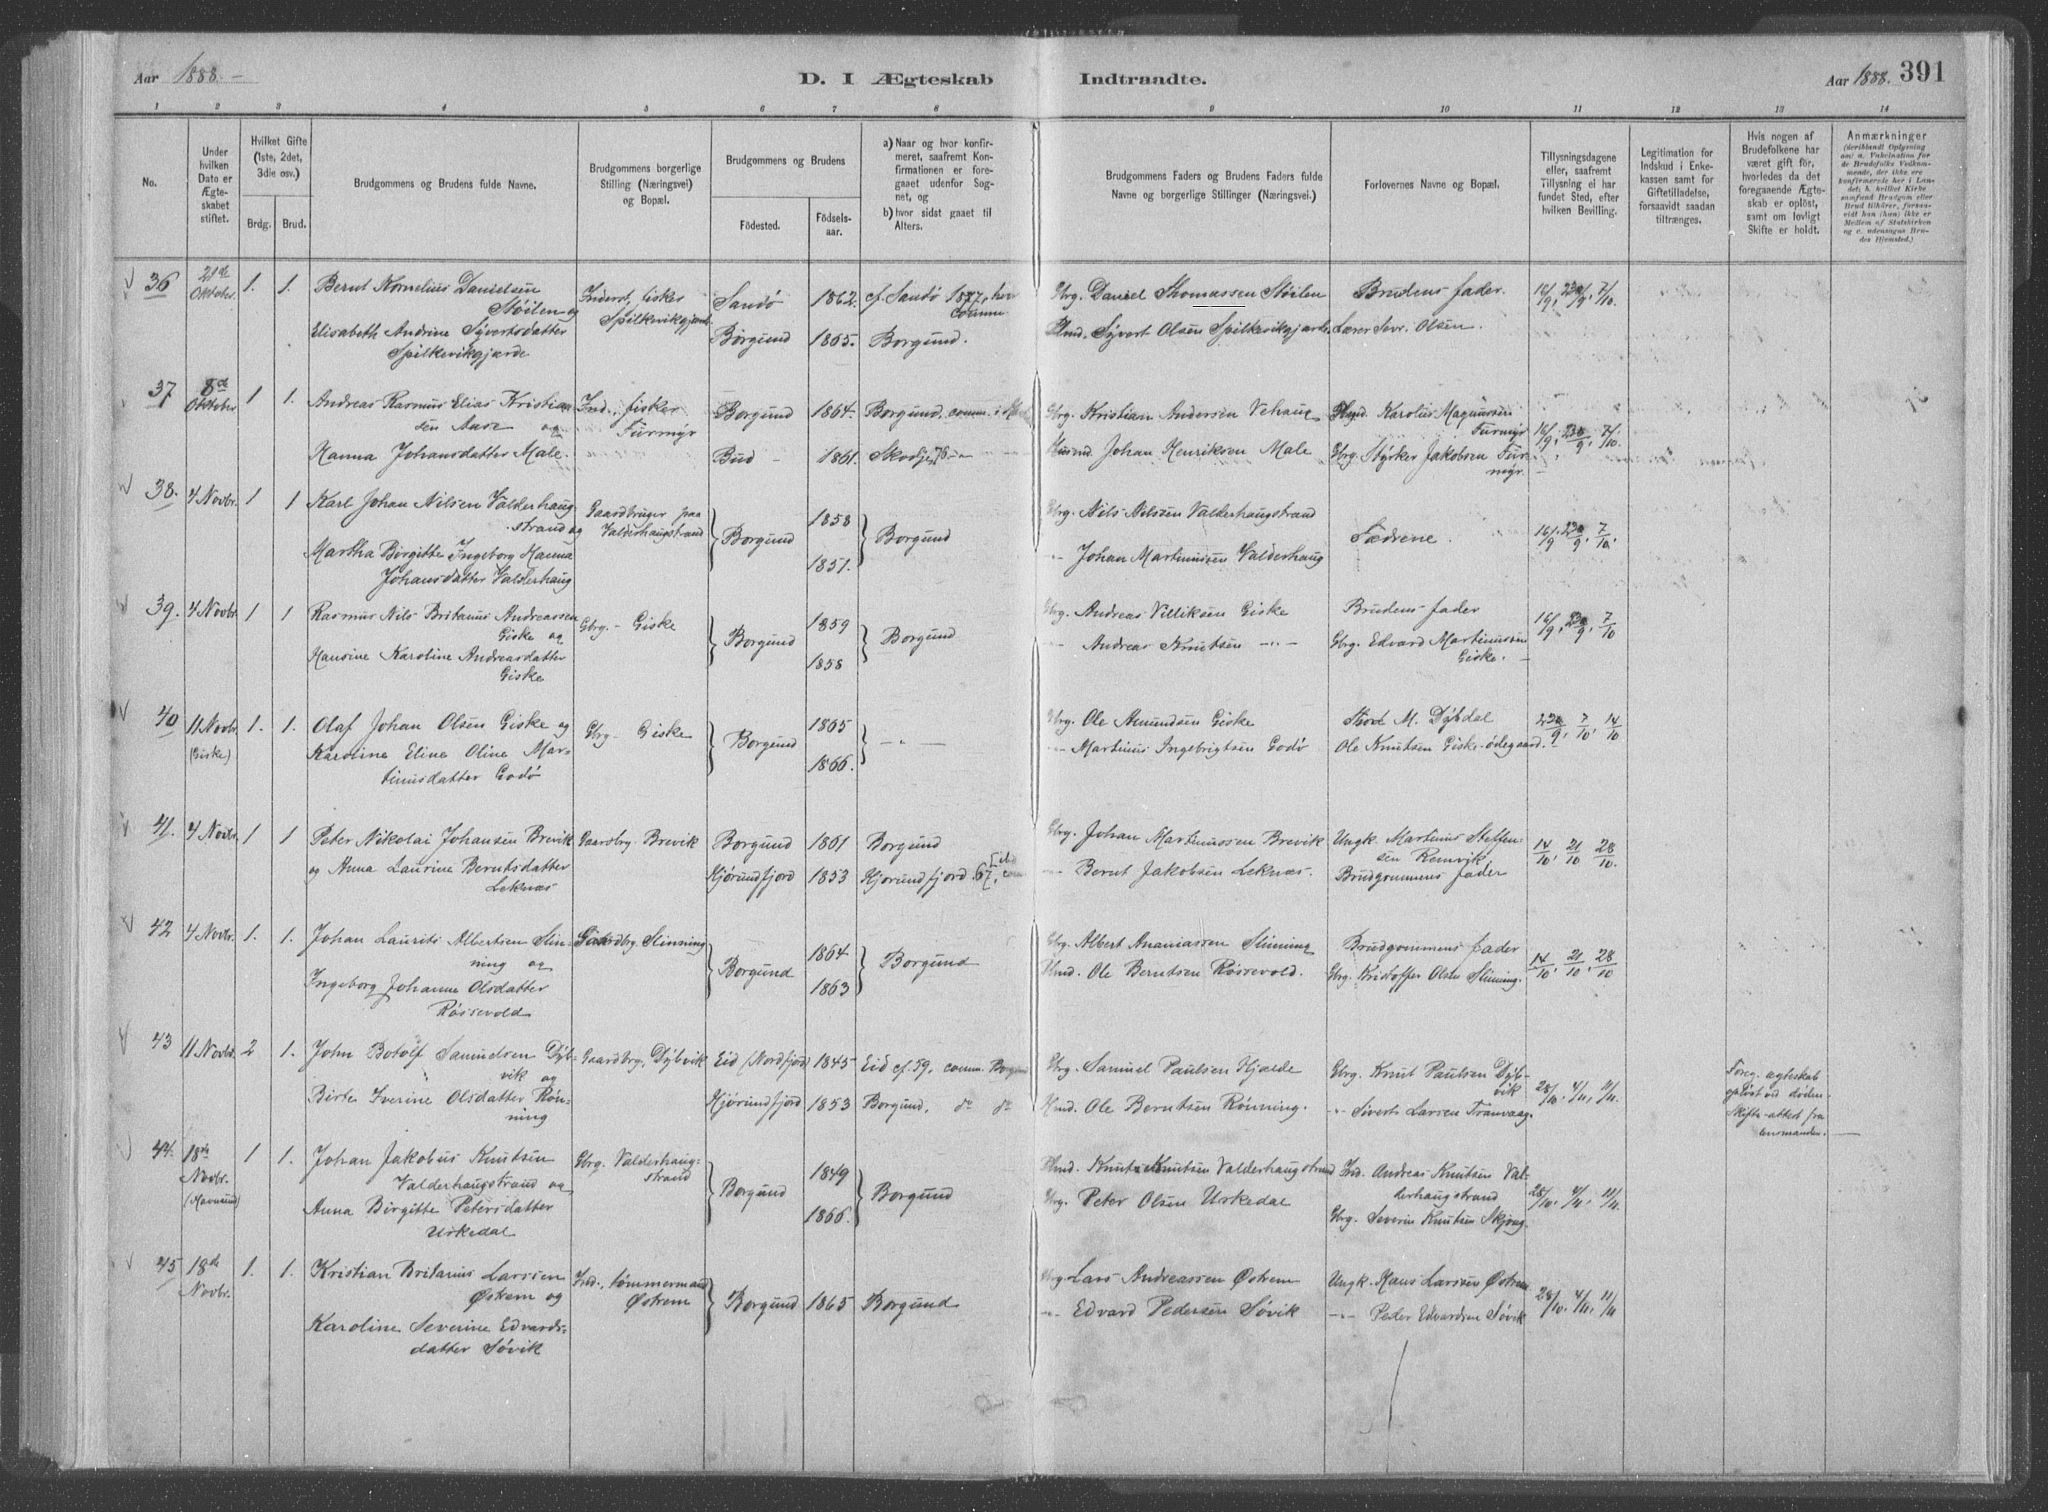 Aar 1888.
D. I Ægteskab Indtraadte.
Aar 1888. 391
1 2 3 4 5 6 7 8 9 10 11 12 13 14
No.
Under hvilken Dato er Ægteskabet stiftet.
Hvilket Gifte (1ste, 2det, 3die osv.)
Brdg. Brud.
Brudgommens og Brudens fulde Navne.
Brudgommens borgerlige Stilling (Næringsvei) og Bopæl.
Brudgommens og Brudens
Födested. Födselsaar.
a) Naar og hvor konfirmeret, saafremt Konfirmationen er foregaaet udenfor Sognet, og
b) hvor sidst gaaet til Alters.
Brudgommens Faders og Brudens Faders fulde Navne og borgerlige Stillinger (Næringsvei.)
Forlovernes Navne og Bopæl.
Tillysningsdagene eller, saafremt Tillysning ei har fundet Sted, efter hvilken Bevilling.
Legitimation for Indskud i Enkekassen samt for Giftetilladelse, forsaavidt saadan tiltrænges.
Hvis nogen af Brudefolkene har været gift för, hvorledes da det foregaaende Ægteskab er oplöst, samt om lovligt Skifte er holdt.
Anmærkninger
36 21de Oktober. 1. 1. Bernt Kornelius Danielsen Støilen og
Inderst, fisker Spilkevikgjerde
Sandø 1862. cf. Sandø
Gbrg. Daniel Thomassen Støilen
Brudens fader. 16/9, 23/9, 7/10.
Elisabeth Andrine Syvertsdatter Spilkevikgjerde
Borgund 1865. Borgund.
Hmd. Syvert Olsen Spilkevikgjerde
Lærer Sevr. Olsen.
37 8de Oktober 1 1. Andreas Rasmus Elias Kristiansen Aase og
Ind., fisker Furmyr
Borgund 1864. Borgund, comm.
Gbrg. Kristian Andersen Vehaug
Hmd. Karolus Magnussen Furmyr
16/9, 23/9, 7/10.
Hanna Johansdatter Male.
Bud 1861. Skodje, 76
Husmd Johan Henriksen Male
Gbrg. Styrker Jakobsen Furmyr.
38. 4 Novbr. 1 1 Karl Johan Nilsen Valderhaugstrand og
Gaardbruger paa Valderhaugstrand
Borgund 1858 Borgund
Gbrg. Nils Nilssen Valderhaugstrand
Fædrene. 16/9, 23/9, 7/10.
Martha Birgitte Ingeborg Hanna Johansdatter Valderhaug
1851.
-"- Johan Martinussen Valderhaug
39. 4 Novbr 1 1 Rasmus Nils Britanus Andreassen Giske og
Gbrg. - Giske
Borgund 1859 Borgund
Gbrg. Andreas Villiksen Giske
Brudens fader 16/9, 23/9, 7/10
Hansine Karoline Andreasdatter Giske
1858
Andreas Knutsen -"-
Gbrg. Edvard Martinussen Giske.
40 11 Novbr. (Giske) 1. 1. Olaf Johan Olsen Giske og
Gbrg - Giske
Borgund 1865 -"-
Gbrg. Ole Amundsen Giske
M. Dybdal 23/9 7/10, 14/10
Karoline Eline Oline Martinusdatter Godø
1866.
-"- Martinus Ingebrigtsen Godø
Ole Knutsen Giske-ødegaard.
41. 4 Novbr. 1 1 Peter Nikolai Johansen Brevik
Gaardbrg. Brevik
Borgund 1861 Borgund
Gbrg. Johan Martinussen Brevik
Ungk. Martinus Steffensen Remvik,
14/10, 21/10 28/10.
og Anna Laurine Berntsdatter Leknæs
Hjørundfjord 1853 Hjørundfjord 67,
-"- Bernt Jakobsen Leknæs.
Brudgommens fader
42 4 Novbr. 1. 1. Johan Laurits Albertsen Slinning og
Gaardbrg. Slinning
Borgund 1864 Borgund
Gbrg. Albert Ananiassen Slinning
Brudgommens fader 14/10, 21/10, 28/10
Ingeborg Johanne Olsdatter Røssevold
1863
Hmd. Ole Berntsen Røssevold.
Gbrg. Kristoffer Olsen Slinning.
43 11 Novbr. 2 1. John Botolf Samuelsen Dybvik og
Gaardbrg. Dybvik
Eid (Nordfjord) 1845 Eid cf. 59, comm. Borgund
Gbrg. Samuel Paulsen Hjelde
Gbrg. Knut Paulsen Dybvik
28/10, 4/11, 11/11.
Foreg. ægteskab opløst ved døden. Skifte-attest fra lensmanden.
Birte Iverine Olsdatter Rønning
Hjørundfjord 1853 Borgund, do do
Hmd. Ole Berntsen Rønning.
-"- Sivert Larsen Tranvaag.
44. 18de Novbr. 1 1. Johan Jakobus Knutsen Valderhaugstrand og
Gbrg. Valderhaugstrand
Borgund 1849 Borgund
Hmd. Knut Knutsen Valderhaugstrand
Ind. Andreas Knutsen Valderhaugstrand
28/10, 4/11, 11/11
Anna Birgitte Petersdatter Urkedal
1866.
Gbrg. Peter Olsen Urkedal
Gbrg. Severin Knutsen Skjong.
45 18de Novbr. 1. 1. Kristian Britanius Larsen Østrem og
Ind., tømmermand Østrem
Borgund 1865 Borgund
Gbrg Lars Andreassen Østrem
Ungk. Hans Larssen Østrem
28/10, 4/11, 11/11
Karoline Severine Edvardsdatter Søvik
-"- Edvard Pedersen Søvik
-"- Peder Edvardsen Søvik